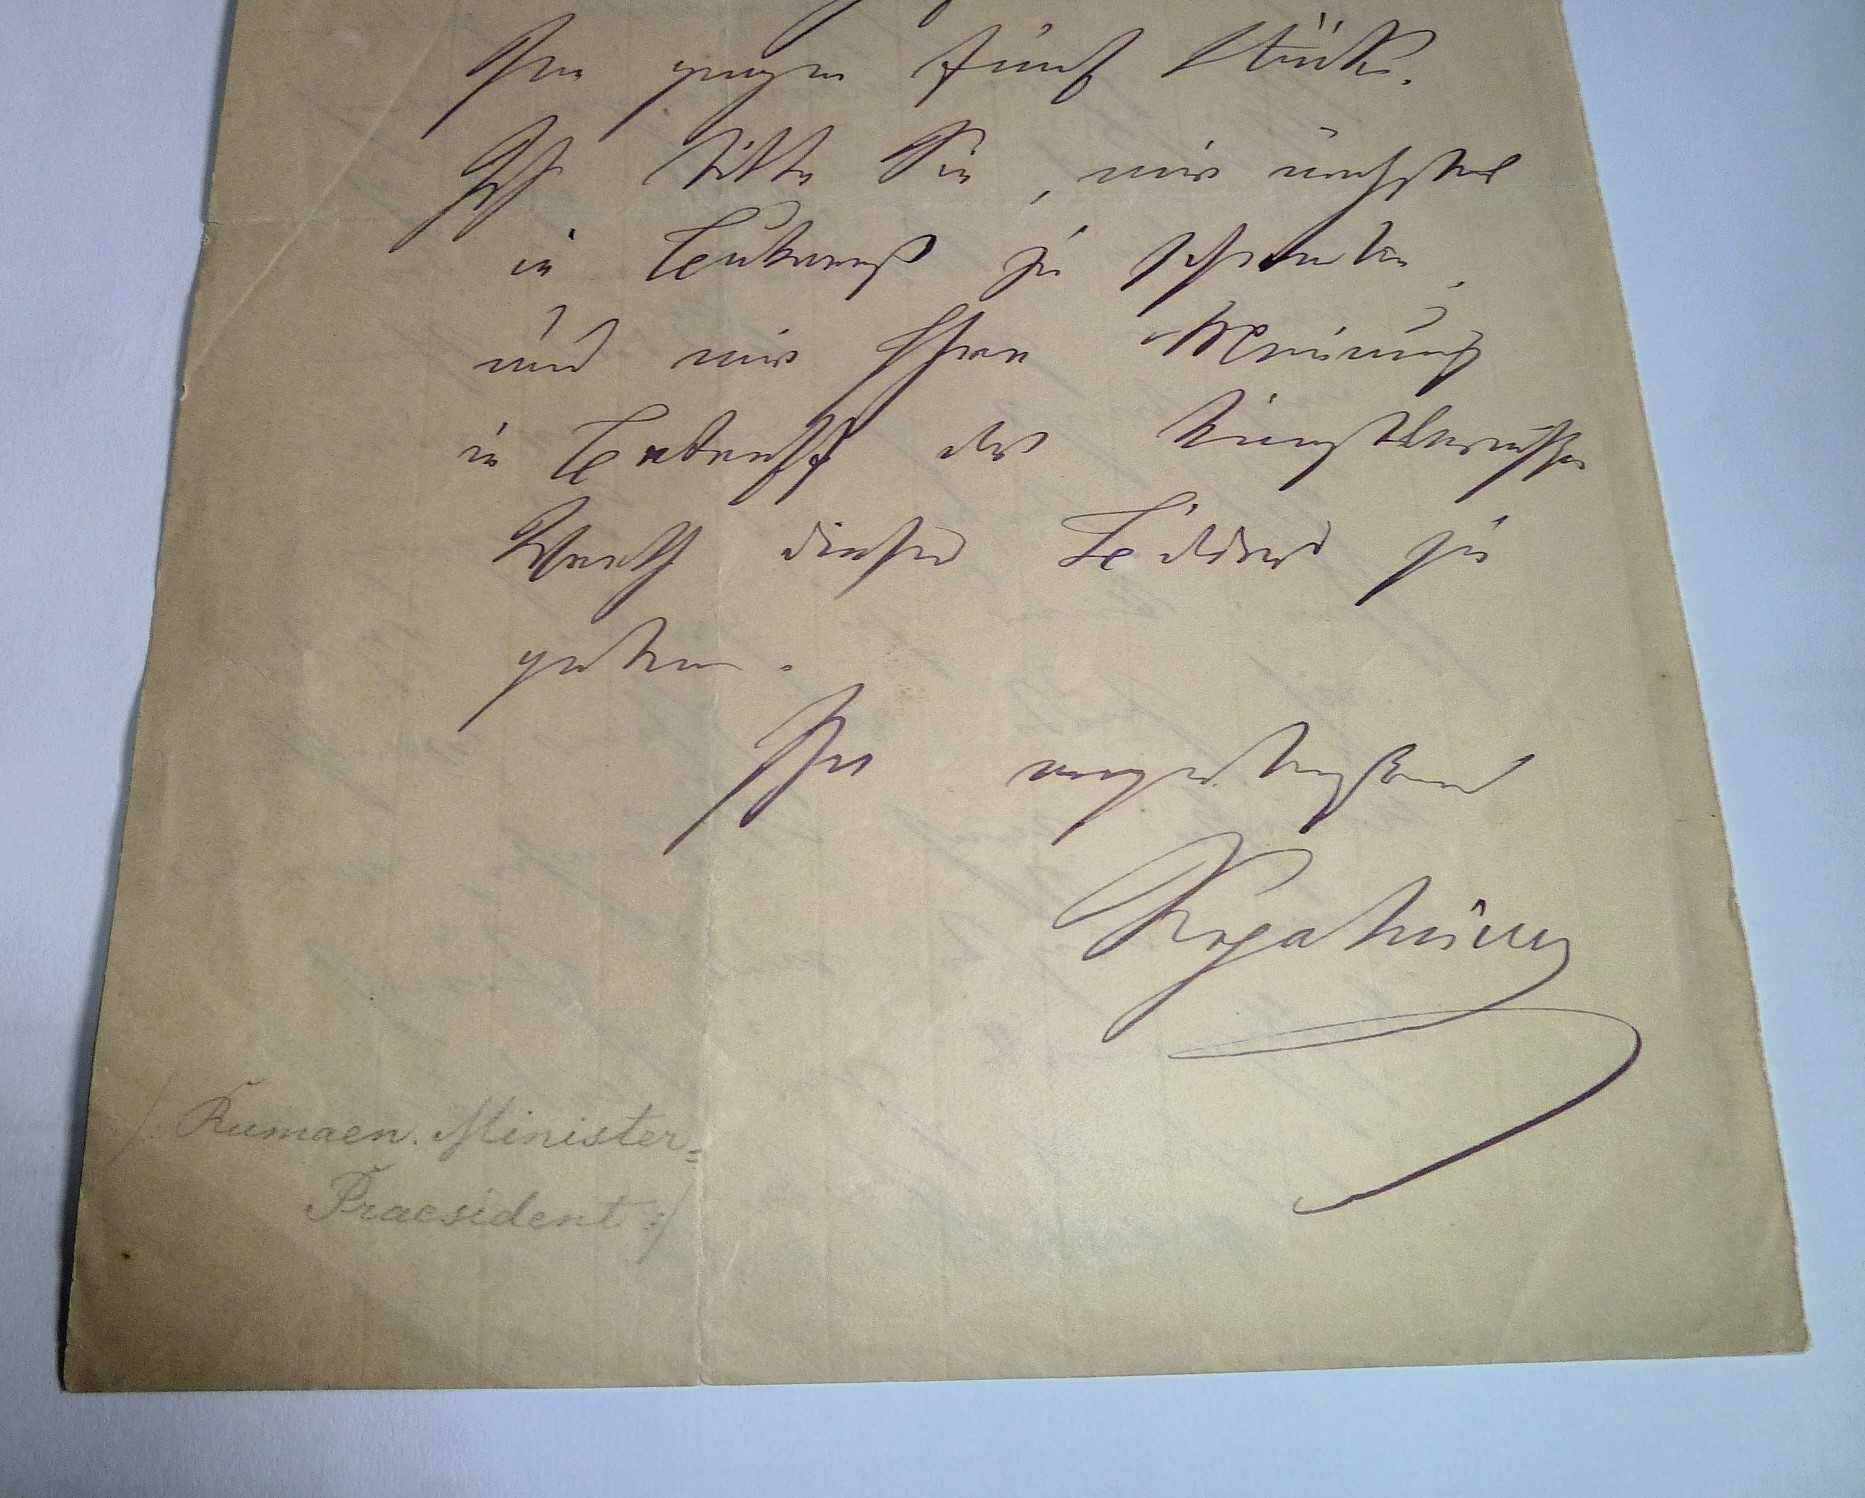 gegen fünf Stücke.
Ich bitte Sie, mir nächstens
in Bukarest zu schreiben,
und mir Ihre Meinung
in Betreff des künstlerischen
Werth dieser Bilder zu
geben.
Ihr ergebenster
Kogalniceanu
/: Rumaen. Minister=
Praesident :/